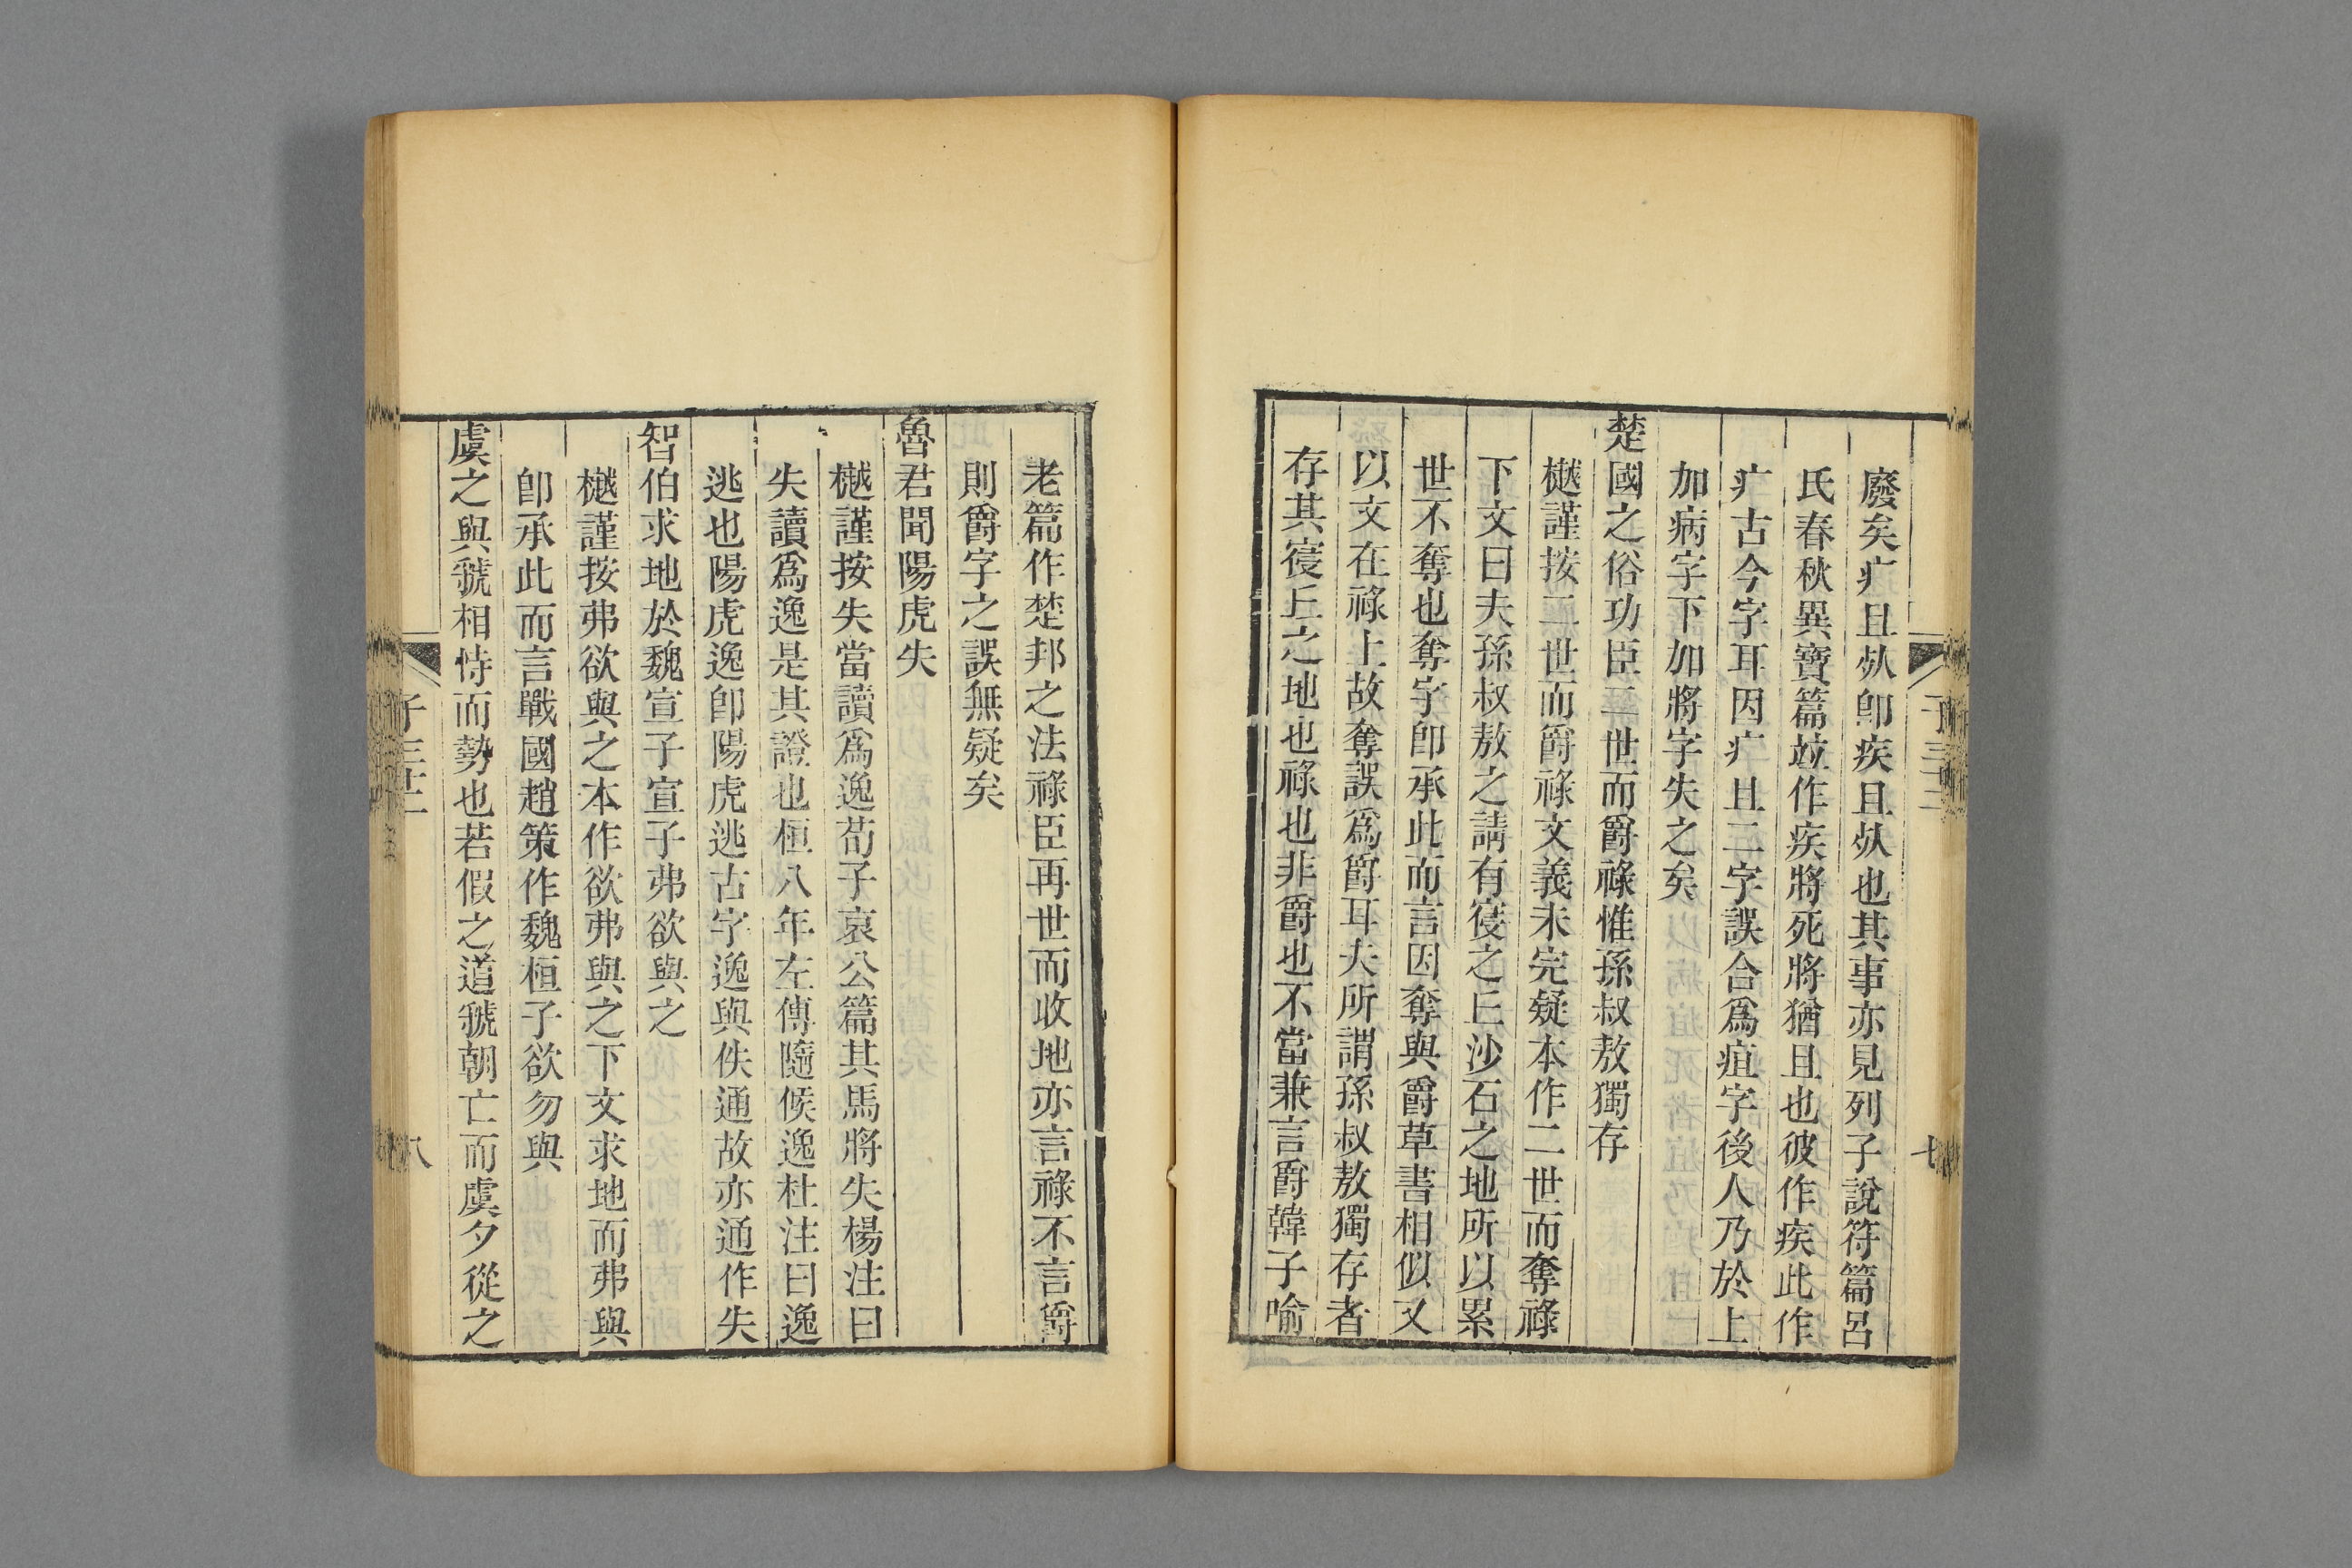 廢矣疒且㱙卽疾且㱙也其事亦見列子說符篇呂
氏春秋異寶篇竝作疾將死將猶且也彼作疾此作
疒古今字耳因疒且二字誤合爲疽字後人乃於上
加病字下加將字失之矣
楚國之俗功臣二世而爵祿惟孫叔敖獨存
樾謹按二世而爵祿文義未完疑本作二世而奪祿
下文曰夫孫叔敖之請有寑之丘沙石之地所以累
世不奪也奪字卽承此而言因奪與爵草書相似又
以文在祿上故奪誤爲爵耳夫所謂孫叔敖獨存者
存其寑丘之地也祿也非爵也不當兼言爵韓子喻
七
老篇作楚邦之法祿臣再世而收地亦言祿不言爵
則爵字之誤無疑矣
魯君聞陽虎失
樾謹按失當讀爲逸荀子哀公篇其馬將失楊注曰
失讀爲逸是其證也桓八年左傳隨侯逸杜注曰逸
逃也陽虎逸卽陽虎逃古字逸與佚通故亦通作失
智伯求地於魏宣子宣子弗欲與之
樾謹按弗欲與之本作欲弗與之下文求地而弗與
卽承此而言戰國趙策作魏桓子欲勿與
虞之與虢相恃而勢也若假之道虢朝亡而虞夕從之
八